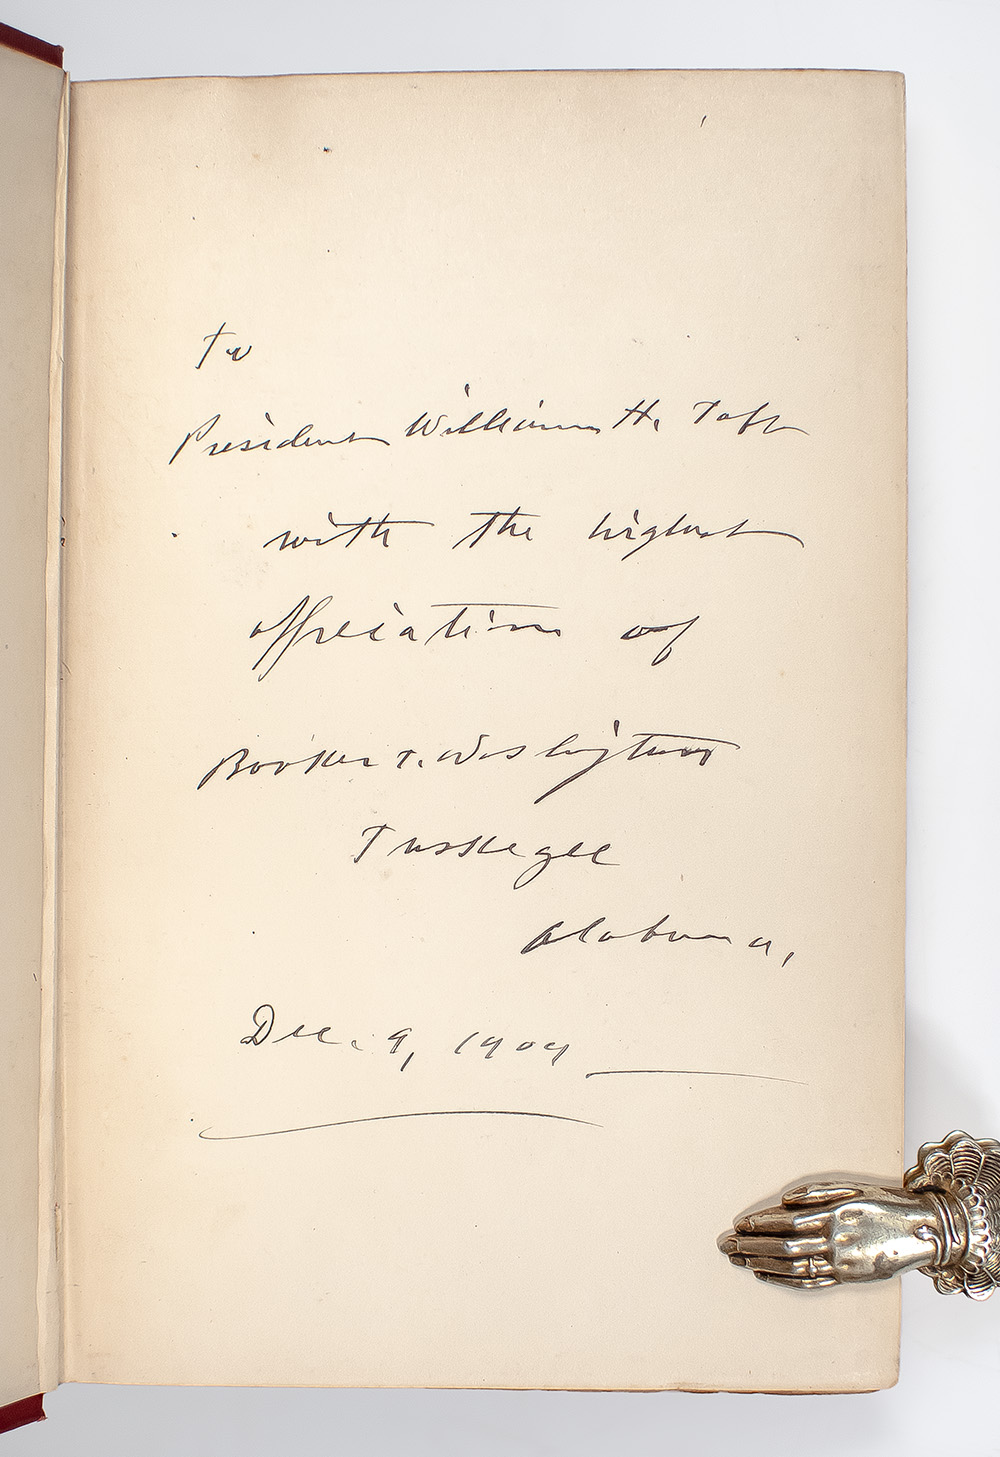 To
President William H. Taft
with the highest
appreciation of
Booker T. Washington
Tuskegee
Alabama,
Dec. 9, 1909